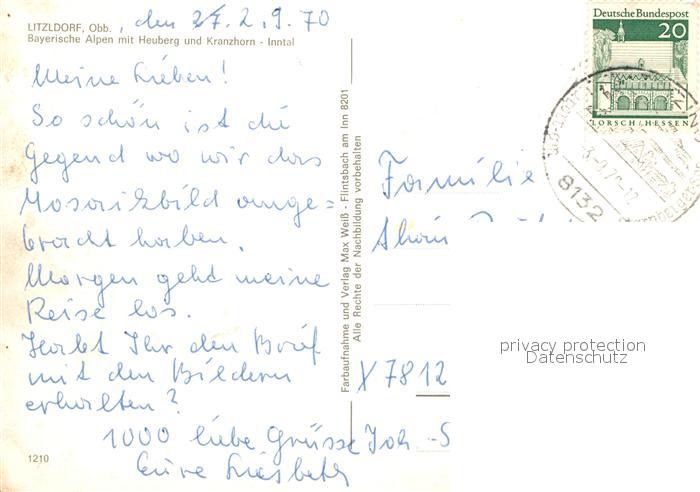 LITZLDORF, Obb., den 2.9.70
Bayerische Alpen mit Heuberg und Kranzhorn - Inntal
Meine Lieben!
So schön ist die
Gegend wo wir das
Mosaikbild ange=
bracht haben.
Morgen geht meine
Reise los.
Habt Ihr den Brief
mit den Bildern
erhalten?
1000 liebe Grüsse Joh
Eure Liesbeth
1210
Farbaufnahme und Verlag Max Weiß - Flintsbach am Inn 8201
Alle Rechte der Nachbildung vorbehalten
Deutsche Bundespost
20
LORSCH/HESSEN
8132
Familie
X 7812
privacy protection
Datenschutz